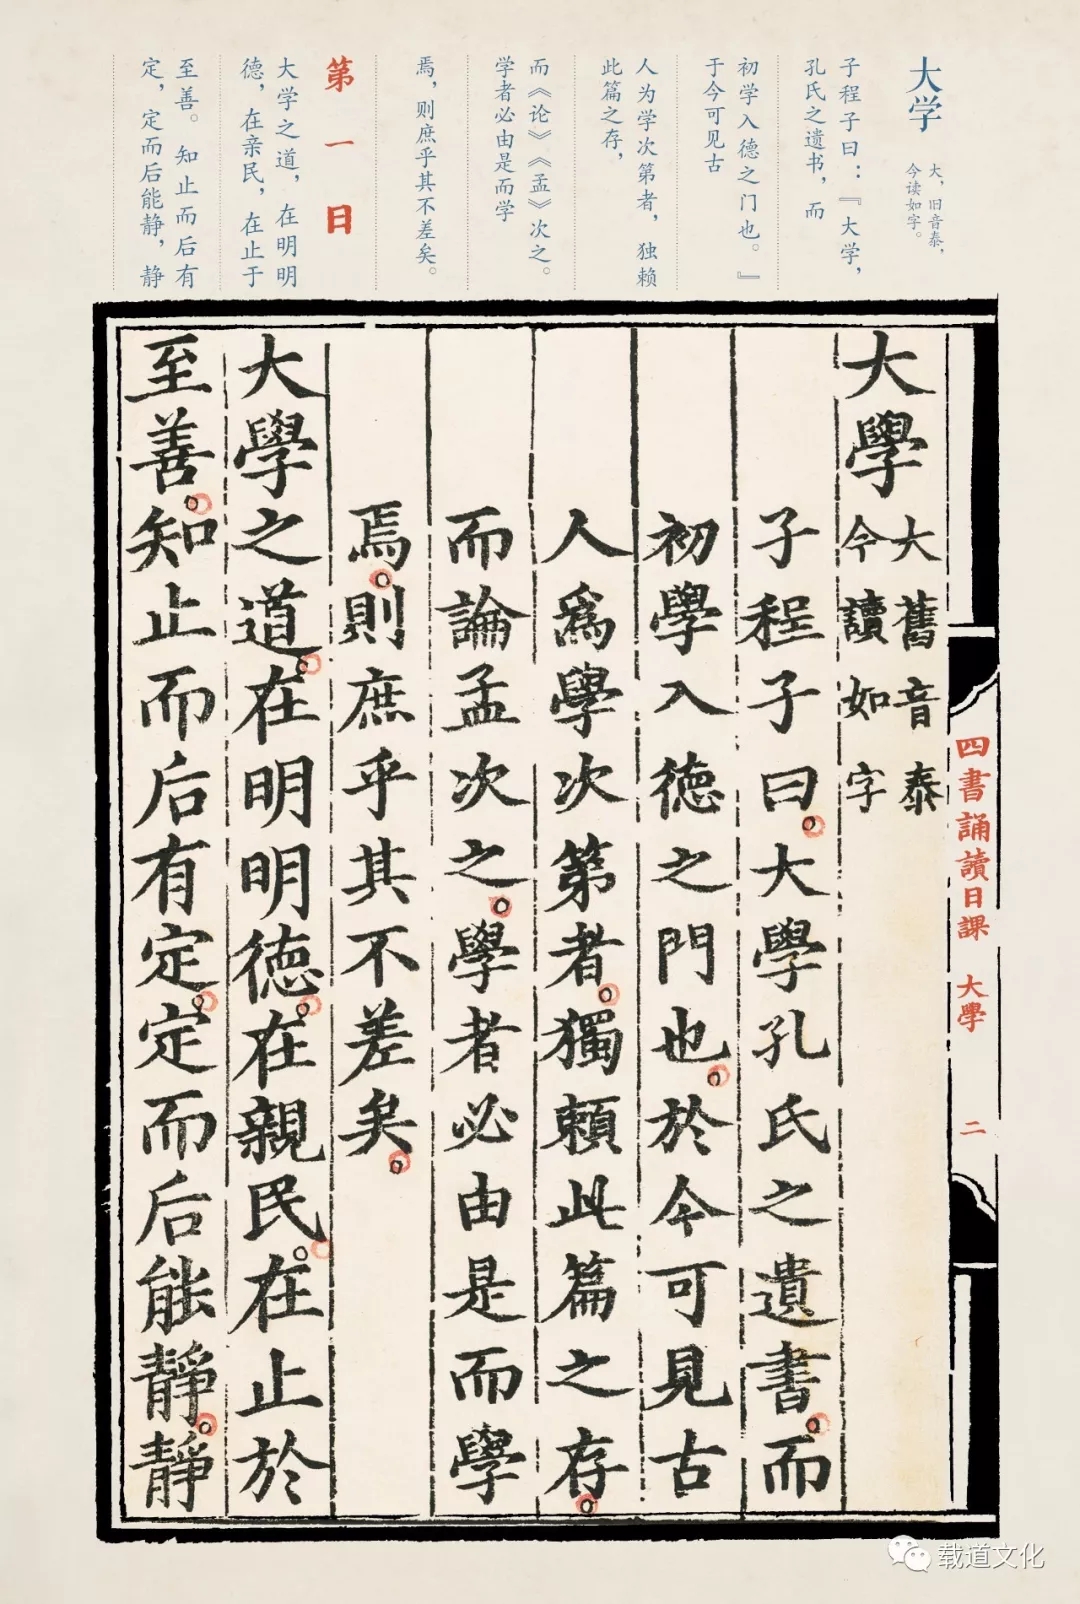 大学
大，旧音泰，
今读如字。
子程子曰：『大学，
孔氏之遗书，而
初学入德之门也。』
于今可见古
人为学次第者，独赖
此篇之存，
而《论》《孟》次之。
学者必由是而学
焉，则庶乎其不差矣。
第一日
大学之道，在明明
德，在亲民，在止于
至善。知止而后有
定，定而后能静，静
四書誦讀日課 大學 二
大學
大舊音泰
今讀如字
子程子曰。大學孔氏之遺書。而
初學入德之門也。於今可見古
人爲學次第者。獨賴此篇之存。
而論孟次之。學者必由是而學
焉。則庶乎其不差矣。
大學之道。在明明德。在親民。在止於
至善。知止而后有定。定而后能靜。靜
载道文化